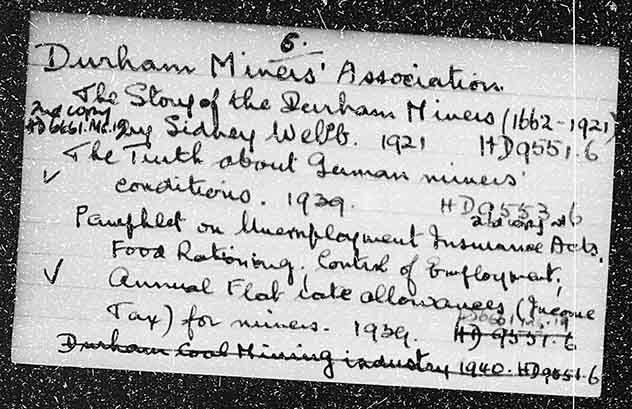 6.
Durham Miners' Association.
The Story of the Durham Miners (1662-1921)
2nd copy
HD6661.M6.19 by Sidney Webb. 1921 HD9551.6
The Truth about German miners'
✓ conditions. 1939. HD9553.6
2nd copy at
Pamphlet on Unemployment Insurance Acts,
Food Rationing, Control of Employment,
✓ Annual Flat rate allowances (Income
Tax) for miners. 1939. HD 9551.6
Durham Coal Mining industry 1940. HD9551.6